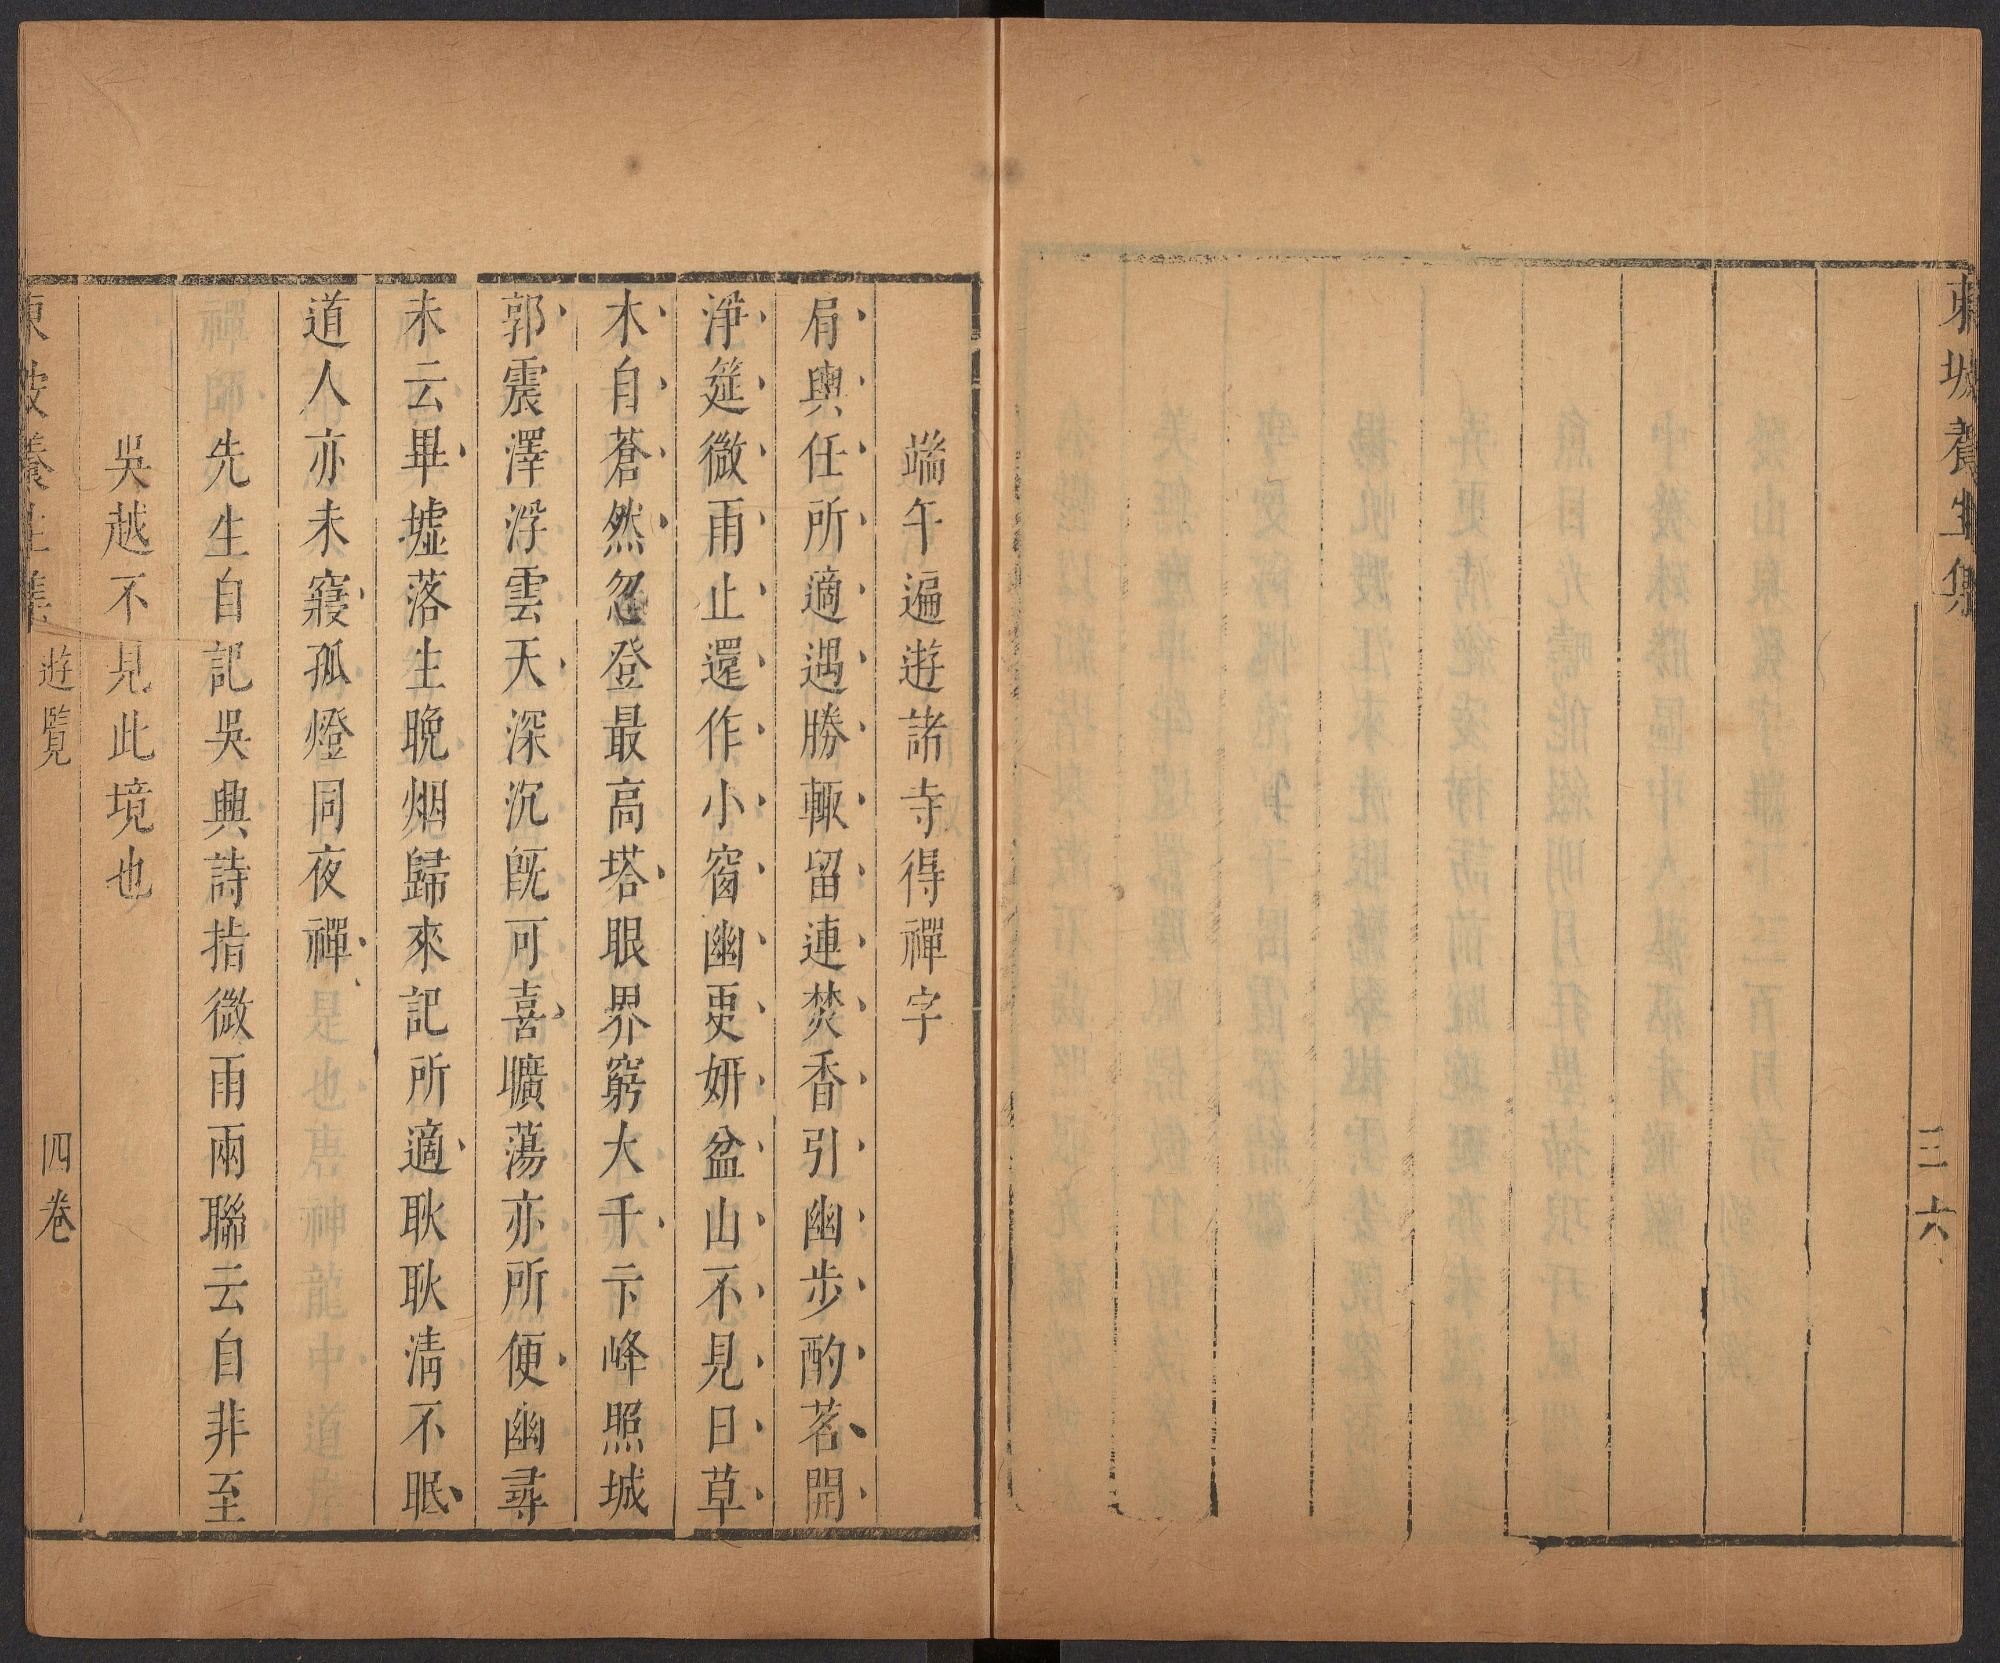 東坡養生集
三六
端午遍遊諸寺得禪字
肩輿任所適遇勝輙留連焚香引幽步酌茗開
淨筵微雨止還作小窗幽更妍盆山不見日草
木自蒼然忽登最高塔眼界窮大千卞峰照城
郭震澤浮雲天深沉旣可喜曠蕩亦所便幽尋
未云畢墟落生晚烟歸來記所適耿耿清不眠
道人亦未寢孤燈同夜禪
先生自記吳興詩指微雨兩聯云自非至
吳越不見此境也
東坡養生集 遊覧 四卷